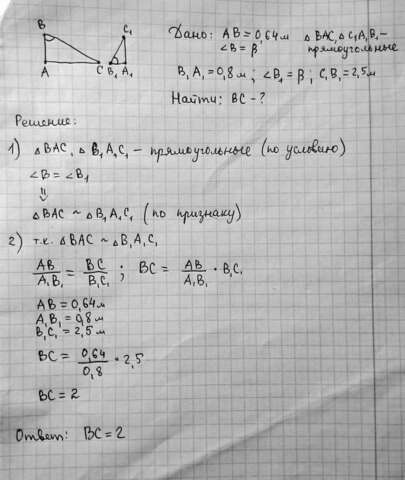 B
C₁
A
C
B₁
A₁
Дано: AB = 0,64 м △BAC, △C₁A₁B₁ – прямоугольные
∠B = β
B₁A₁ = 0,8 м ; ∠B₁ = β ; C₁B₁ = 2,5 м
Найти: BC – ?
Решение:
1) △BAC, △B₁A₁C₁ – прямоугольные (по условию)
∠B = ∠B₁
⇓
△BAC ~ △B₁A₁C₁ (по признаку)
2) т.к. △BAC ~ △B₁A₁C₁
AB/A₁B₁ = BC/B₁C₁ ; BC = AB/A₁B₁ · B₁C₁
AB = 0,64 м
A₁B₁ = 0,8 м
B₁C₁ = 2,5 м
BC = 0,64/0,8 · 2,5
BC = 2
Ответ: BC = 2